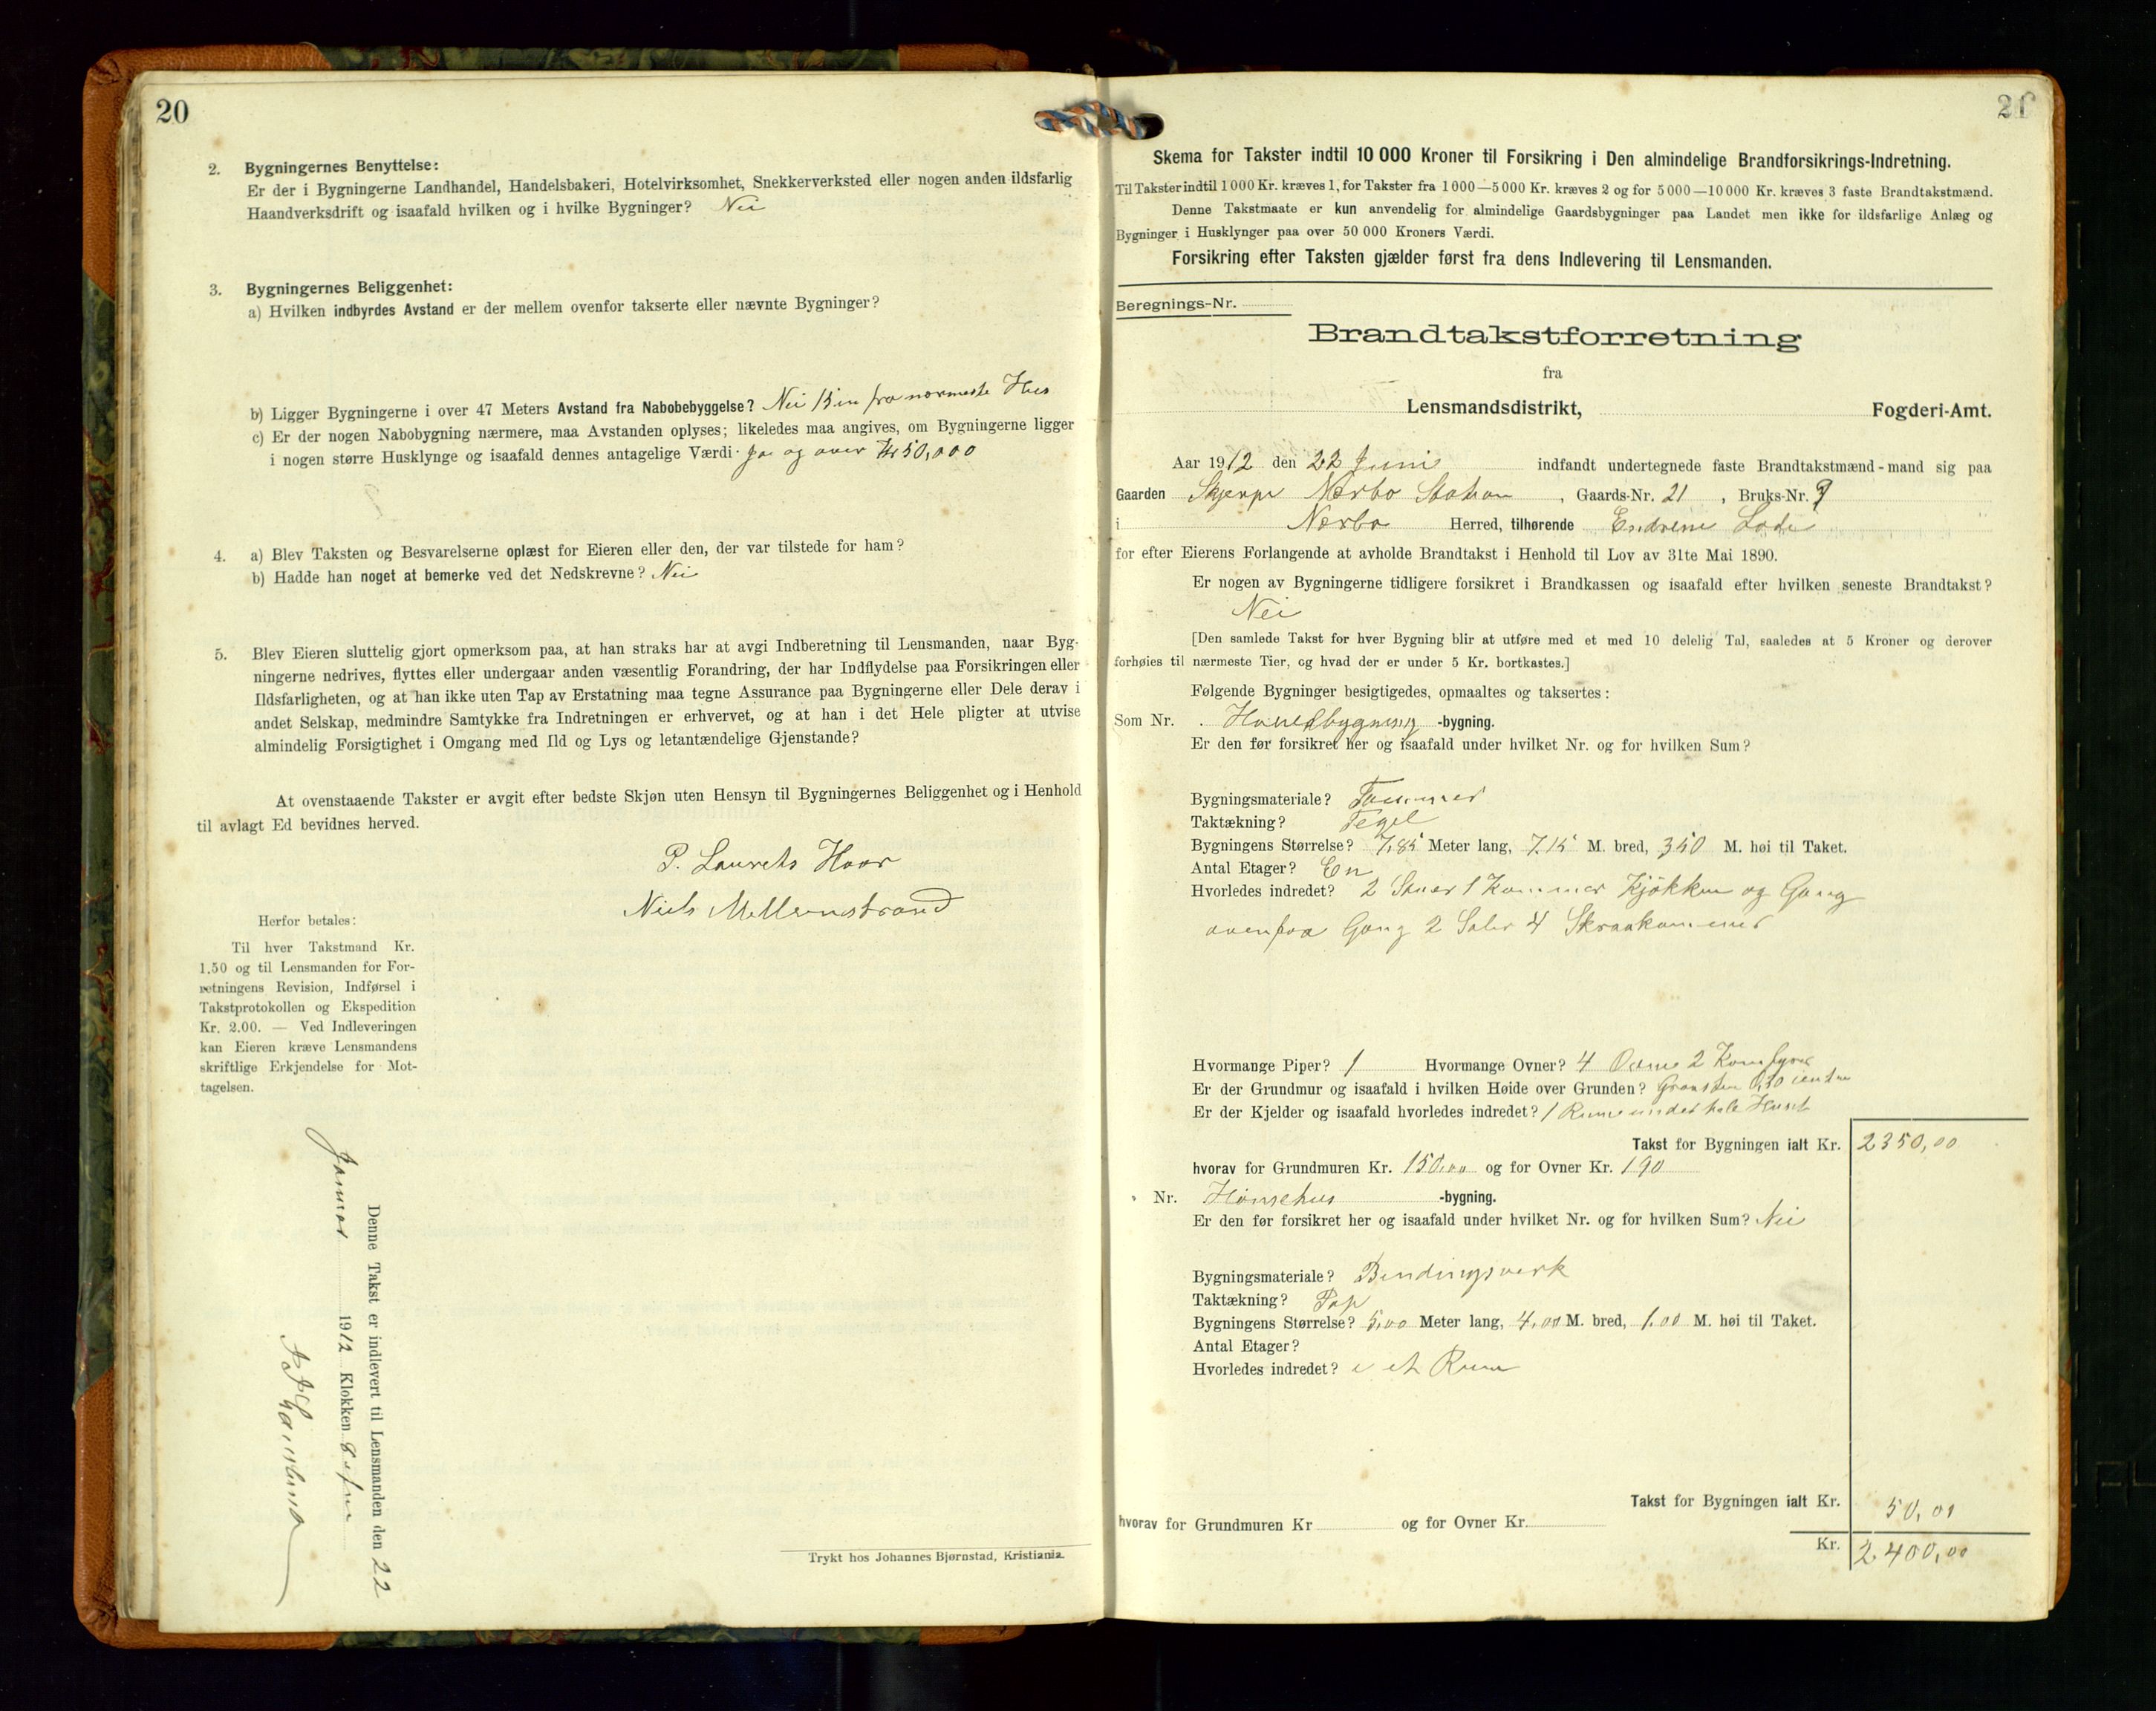 20
2. Bygningernes Benyttelse:
Er der i Bygningerne Landhandel, Handelsbakeri, Hotelvirksomhet, Snekkerverksted eller nogen anden ildsfarlig
Haandverksdrift og isaafald hvilken og i hvilke Bygninger? Nei
3. Bygningernes Beliggenhet:
a) Hvilken indbyrdes Avstand er der mellem ovenfor takserte eller nævnte Bygninger?
b) Ligger Bygningerne i over 47 Meters Avstand fra Nabobebyggelse? Nei 15 m fra nærmeste Hus
c) Er der nogen Nabobygning nærmere, maa Avstanden oplyses; likeledes maa angives, om Bygningerne ligger
i nogen større Husklynge og isaafald dennes antagelige Værdi. Ja og over Kr 50,000
4. a) Blev Taksten og Besvarelserne oplæst for Eieren eller den, der var tilstede for ham?
b) Hadde han noget at bemerke ved det Nedskrevne? Nei
5. Blev Eieren sluttelig gjort opmerksom paa, at han straks har at avgi Indberetning til Lensmanden, naar Byg-
ningerne nedrives, flyttes eller undergaar anden væsentlig Forandring, der har Indflydelse paa Forsikringen eller
Ildsfarligheten, og at han ikke uten Tap av Erstatning maa tegne Assurance paa Bygningerne eller Dele derav i
andet Selskap, medmindre Samtykke fra Indretningen er erhvervet, og at han i det Hele pligter at utvise
almindelig Forsigtighet i Omgang med Ild og Lys og letantændelige Gjenstande?
At ovenstaaende Takster er avgit efter bedste Skjøn uten Hensyn til Bygningernes Beliggenhet og i Henhold
til avlagt Ed bevidnes herved.
P. Laurets Haar
Niels Mellemstrand
Herfor betales:
Til hver Takstmand Kr.
1.50 og til Lensmanden for For-
retningens Revision, Indførsel i
Takstprotokollen og Ekspedition
Kr. 2.00. — Ved Indleveringen
kan Eieren kræve Lensmandens
skriftlige Erkjendelse for Mot-
tagelsen.
Denne Takst er indlevert til Lensmanden den 22
Januar 1912 Klokken 8
Trykt hos Johannes Bjørnstad, Kristiania.
21
Skema for Takster indtil 10 000 Kroner til Forsikring i Den almindelige Brandforsikrings-Indretning.
Til Takster indtil 1000 Kr. kræves 1, for Takster fra 1000—5000 Kr. kræves 2 og for 5000—10000 Kr. kræves 3 faste Brandtakstmænd.
Denne Takstmaate er kun anvendelig for almindelige Gaardsbygninger paa Landet men ikke for ildsfarlige Anlæg og
Bygninger i Husklynger paa over 50 000 Kroners Værdi.
Forsikring efter Taksten gjælder først fra dens Indlevering til Lensmanden.
Beregnings-Nr.
Brandtakstforretning
fra
Lensmandsdistrikt, Fogderi-Amt.
Aar 1912 den 22 Juni indfandt undertegnede faste Brandtakstmænd-mand sig paa
Gaarden Skjerpe Nærbø Station, Gaards-Nr. 21, Bruks-Nr. 9
i Nærbø Herred, tilhørende Endrene Lode
for efter Eierens Forlangende at avholde Brandtakst i Henhold til Lov av 31te Mai 1890.
Er nogen av Bygningerne tidligere forsikret i Brandkassen og isaafald efter hvilken seneste Brandtakst?
Nei
[Den samlede Takst for hver Bygning blir at utføre med et med 10 delelig Tal, saaledes at 5 Kroner og derover
forhøies til nærmeste Tier, og hvad der er under 5 Kr. bortkastes.]
Følgende Bygninger besigtigedes, opmaaltes og taksertes:
Som Nr. Hovedbygning -bygning.
Er den før forsikret her og isaafald under hvilket Nr. og for hvilken Sum?
Bygningsmateriale? Tømmer
Taktækning? Tegel
Bygningens Størrelse? 7,85 Meter lang, 7.15 M. bred, 350 M. høi til Taket.
Antal Etager? En
Hvorledes indredet? 2 Stuer 1 Kammer Kjøkken og Gang
ovenpaa Gang 2 Saler 4 Skraakammer
Hvormange Piper? 1 Hvormange Ovner? 4 Ovne 2 Komfyrer
Er der Grundmur og isaafald i hvilken Høide over Grunden? Graasten 0,50
Er der Kjelder og isaafald hvorledes indredet? 1 Rum under hele Huset
Takst for Bygningen ialt Kr. 2350,00
hvorav for Grundmuren Kr. 150.00 og for Ovner Kr. 190
Nr. Hønsehus -bygning.
Er den før forsikret her og isaafald under hvilket Nr. og for hvilken Sum? Nei
Bygningsmateriale? Bindingsverk
Taktækning? Pap
Bygningens Størrelse? 5,00 Meter lang, 4,00 M. bred, 1.00 M. høi til Taket.
Antal Etager?
Hvorledes indredet? i et Rum
Takst for Bygningen ialt Kr. 50,00
hvorav for Grundmuren Kr og for Ovner Kr.
Kr. 2.400,00